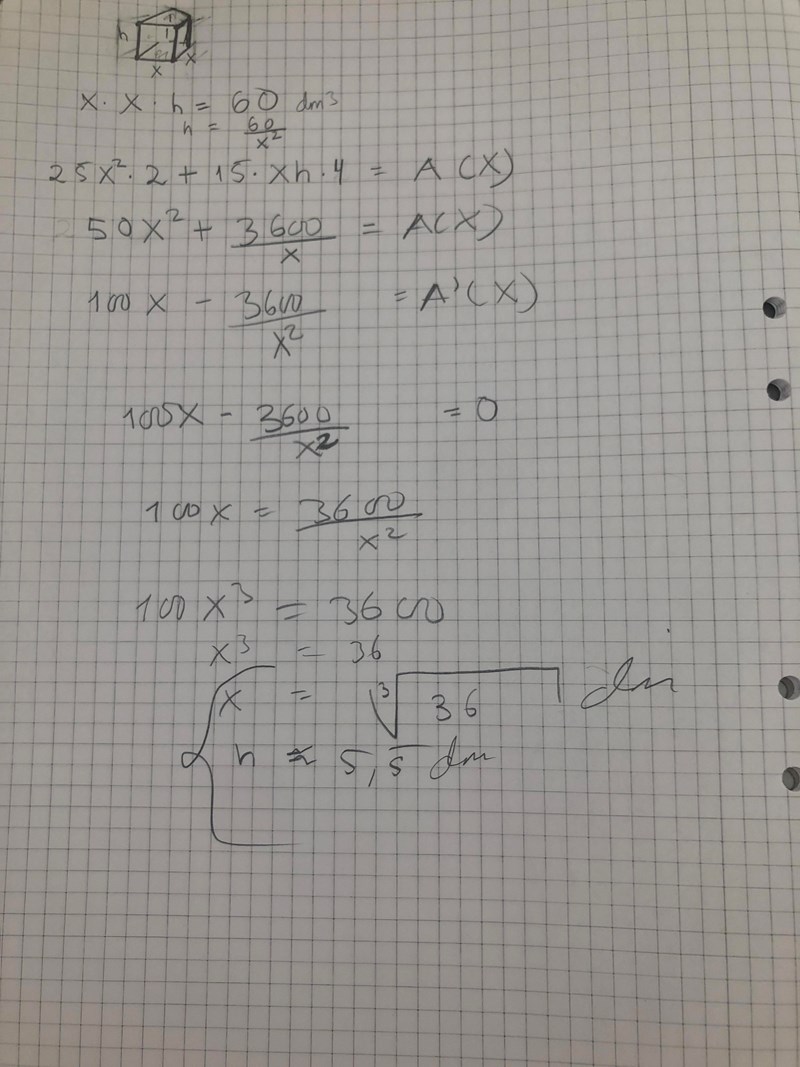 h
x x
x · x · h = 60 dm³
h = 60/x²
25x² · 2 + 15 · xh · 4 = A(x)
50x² + 3600/x = A(x)
100x - 3600/x² = A'(x)
100x - 3600/x² = 0
100x = 3600/x²
100x³ = 3600
x³ = 36
x = ∛36 dm
h ≈ 5,5 dm